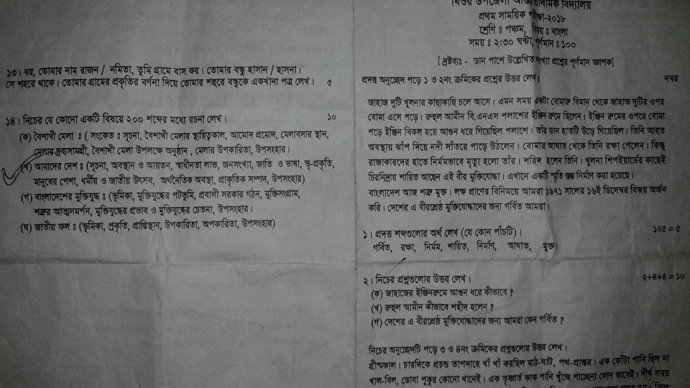 ১৩। ধর, তোমার নাম রাজন / নমিতা, তুমি গ্রামে বাস কর। তোমার বন্ধু হাসান / হাসনা।
সে শহরে থাকে। তোমার গ্রামের প্রকৃতির বর্ণনা দিয়ে তোমার শহুরে বন্ধুকে একখানা পত্র লেখ। ৫
১৪। নিচের যে কোনো একটি বিষয়ে ২০০ শব্দের মধ্যে রচনা লেখ। ১০
(ক) বৈশাখী মেলা : (সংকেত : সূচনা, বৈশাখী মেলার স্থায়িত্বকাল, আমোদ প্রমোদ, মেলাবসার স্থান,
মেলার দ্রব্যসামগ্রী, বৈশাখী মেলা উপলক্ষে অনুষ্ঠান, মেলার উপকারিতা, উপসংহার)।
(খ) আমাদের দেশ : (সূচনা, অবস্থান ও আয়তন, স্বাধীনতা লাভ, জনসংখ্যা, জাতি ও ভাষা, ভূ-প্রকৃতি,
মানুষের পেশা, ধর্মীয় ও জাতীয় উৎসব, অর্থনৈতিক অবস্থা, প্রাকৃতিক সম্পদ, উপসংহার)
(গ) বাংলাদেশের মুক্তিযুদ্ধ : (ভূমিকা, মুক্তিযুদ্ধের পটভূমি, প্রবাসী সরকার গঠন, মুক্তিসংগ্রাম,
শত্রুর আত্মসমর্পন, মুক্তিযুদ্ধের প্রভাব ও মুক্তিযুদ্ধের চেতনা, উপসংহার)
(ঘ) জাতীয় ফল : (ভূমিকা, প্রকৃতি, প্রাপ্তিস্থান, উপকারিতা, অপকারিতা, উপসংহার)
উপজেলা প্রাথমিক বিদ্যালয়
প্রথম সাময়িক পরীক্ষা-২০১৮
শ্রেণি : পঞ্চম, বিষয় : বাংলা
সময় : ২:৩০ ঘন্টা, পূর্ণমান : ১০০
[ দ্রষ্টব্যঃ- ডান পাশে উল্লেখিত সংখ্যা প্রশ্নের পূর্ণমান জ্ঞাপক]
প্রদত্ত অনুচ্ছেদ পড়ে ১ ও ২নং ক্রমিকের প্রশ্নের উত্তর লেখ। নম্বর
জাহাজ দুটি খুলনার কাছাকাছি চলে আসে। এমন সময় একটা বোমারু বিমান থেকে জাহাজ দুটির ওপর
বোমা এসে পড়ে। রুহুল আমীন বি.এনএস পলাশের ইঞ্জিন রুমে ছিলেন। ইঞ্জিন রুমের ওপরে বোমা
পড়ে ইঞ্জিন বিকল হয়ে আগুন ধরে গিয়েছিল পলাশে। তাঁর ডান হাতটি উড়ে গিয়েছিল। তিনি আহত
অবস্থায় ঝাঁপ দিয়ে নদী সাঁতরে পাড়ে উঠলেন। বোমার আঘাত থেকে তিনি রক্ষা পেলেন। কিন্তু
রাজাকারদের হাতে নির্মমভাবে মৃত্যু হলো তাঁর। শহিদ হলেন তিনি। খুলনা শিপইয়ার্ডের কাছেই
চিরনিদ্রায় শায়িত আছেন এই বীর মুক্তিযোদ্ধা। এখানে একটি স্মৃতি স্তম্ভ নির্মাণ করা হয়েছে।
বাংলাদেশ আজ শত্রু মুক্ত। লক্ষ প্রাণের বিনিময়ে আমরা ১৯৭১ সালের ১৬ই ডিসেম্বর বিজয় অর্জন
করি। দেশের এ বীরশ্রেষ্ঠ মুক্তিযোদ্ধাদের জন্য গর্বিত আমরা।
১। প্রদত্ত শব্দগুলোর অর্থ লেখ (যে কোন পাঁচটি)। ১x৫ = ৫
গর্বিত, রক্ষা, নির্মম, শায়িত, নির্মাণ, আঘাত, মুক্ত।
২। নিচের প্রশ্নগুলোর উত্তর লেখ। ২+৪+৪ = ১০
(ক) জাহাজের ইঞ্জিনরুমে আগুন ধরে কীভাবে ?
(খ) রুহুল আমীন কীভাবে শহীদ হলেন ?
(গ) দেশের এ বীরশ্রেষ্ঠ মুক্তিযোদ্ধাদের জন্য আমরা কেন গর্বিত ?
নিচের অনুচ্ছেদটি পড়ে ৩ ও ৪নং ক্রমিকের প্রশ্নগুলোর উত্তর লেখ।
গ্রীষ্মকাল। চারদিকে প্রচন্ড তাপদাহে খাঁ খাঁ করছিল মাঠ-ঘাট, পথ-প্রান্তর। এক ফোঁটা পানি ছিল না
খাল-বিল, ডোবা পুকুর কোনো খানেই। এক তৃষ্ণার্ত কাক পানি খুঁজে পাচ্ছেনা কোন ভাবেই। দীর্ঘ সময়